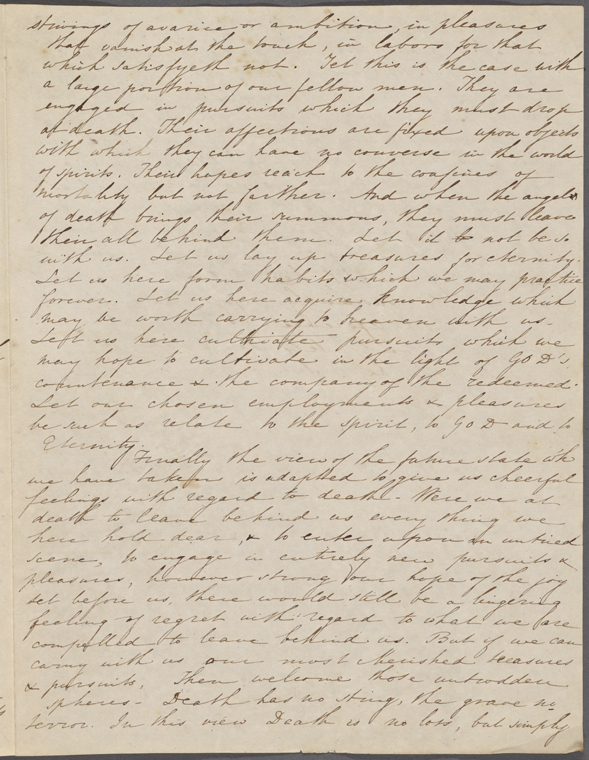 strivings of avarice or ambition, in pleasures
that vanish at the touch, in labors for that
which satisfyeth not. Yet this is the case with
a large portion of our fellow men. They are
engaged in pursuits which they must drop
at death. Their affections are fixed upon objects
with which they can have no converse in the world
of spirits. Their hopes reach to the confines of
mortality but not farther. And when the angel
of death brings their summons, they must leave
their all behind them. Let it be not be so
with us. Let us lay up treasures for eternity.
Let us here form habits which we may practice
forever. Let us here acquire knowledge which
may be worth carrying to heaven with us.
Let us here cultivate pursuits which we
may hope to cultivate in the light of GOD's
countenance & the company of the redeemed.
Let our chosen employments & pleasures
be such as relate to the spirit, to GOD and to
Eternity.
Finally the view of the future state wh
we have taken is adapted to give us cheerful
feelings with regard to death. Were we at
death to leave behind us every thing we
here hold dear, & to enter upon an untried
scene, to engage in entirely new pursuits &
pleasures, however strong our hope of the joy
set before us, there would still be a lingering
feeling of regret with regard to what we are
compelled to leave behind us. But if we can
carry with us our most cherished treasures
& pursuits, Then welcome those untrodden
spheres - Death has no sting, the grave no
terror. In this view Death is no loss, but simply